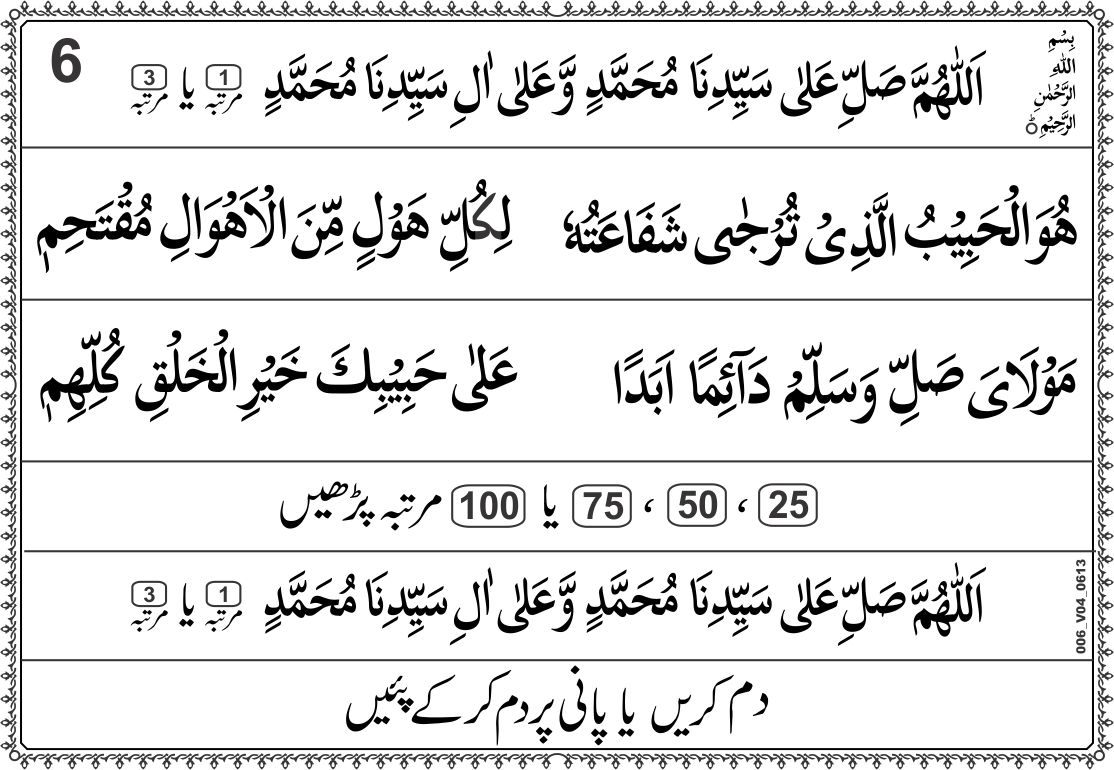 6
بِسْمِ
اللهِ
الرَّحْمٰنِ
الرَّحِيْمِ
اَللّٰهُمَّ صَلِّ عَلٰى سَيِّدِنَا مُحَمَّدٍ وَّعَلٰى اٰلِ سَيِّدِنَا مُحَمَّدٍ 1 مرتبہ یا 3 مرتبہ
هُوَالْحَبِيْبُ الَّذِىْ تُرْجٰى شَفَاعَتُهٗ لِكُلِّ هَوْلٍ مِّنَ الْاَهْوَالِ مُقْتَحِمٖ
مَوْلَاىَ صَلِّ وَسَلِّمْ دَآئِمًا اَبَدًا عَلٰى حَبِيْبِكَ خَيْرِ الْخَلْقِ كُلِّهِمٖ
25 ، 50 ، 75 یا 100 مرتبہ پڑھیں
اَللّٰهُمَّ صَلِّ عَلٰى سَيِّدِنَا مُحَمَّدٍ وَّعَلٰى اٰلِ سَيِّدِنَا مُحَمَّدٍ 1 مرتبہ یا 3 مرتبہ
006_V04_0613
دم کریں یا پانی پر دم کر کے پئیں